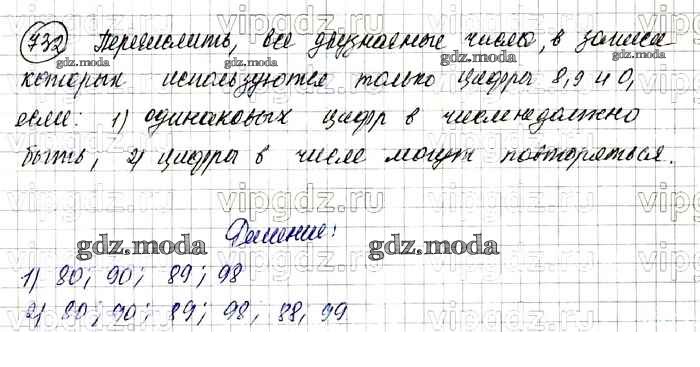 732 Перечислить, все двузначные числа, в записи
которых используются только цифры 8, 9 и 0,
если: 1) одинаковых цифр в числе не должно
быть, 2) цифры в числе могут повторяться.
Решение:
1) 80; 90; 89; 98
2) 80; 90; 89; 98, 88, 99
vipgdz.ru
gdz.moda